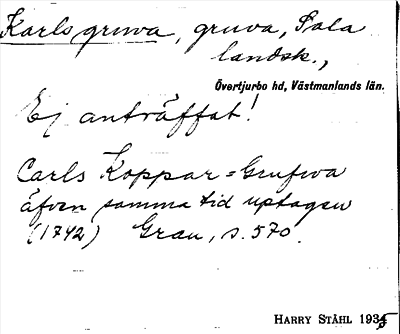 Karls gruva, gruva, Sala
landsk.,
Övertjurbo hd, Västmanlands län.
Ej anträffat!
Carls Koppar=Grufwa
äfven samma tid uptagen
(1742) Grau, s. 570.
HARRY STÅHL 1935